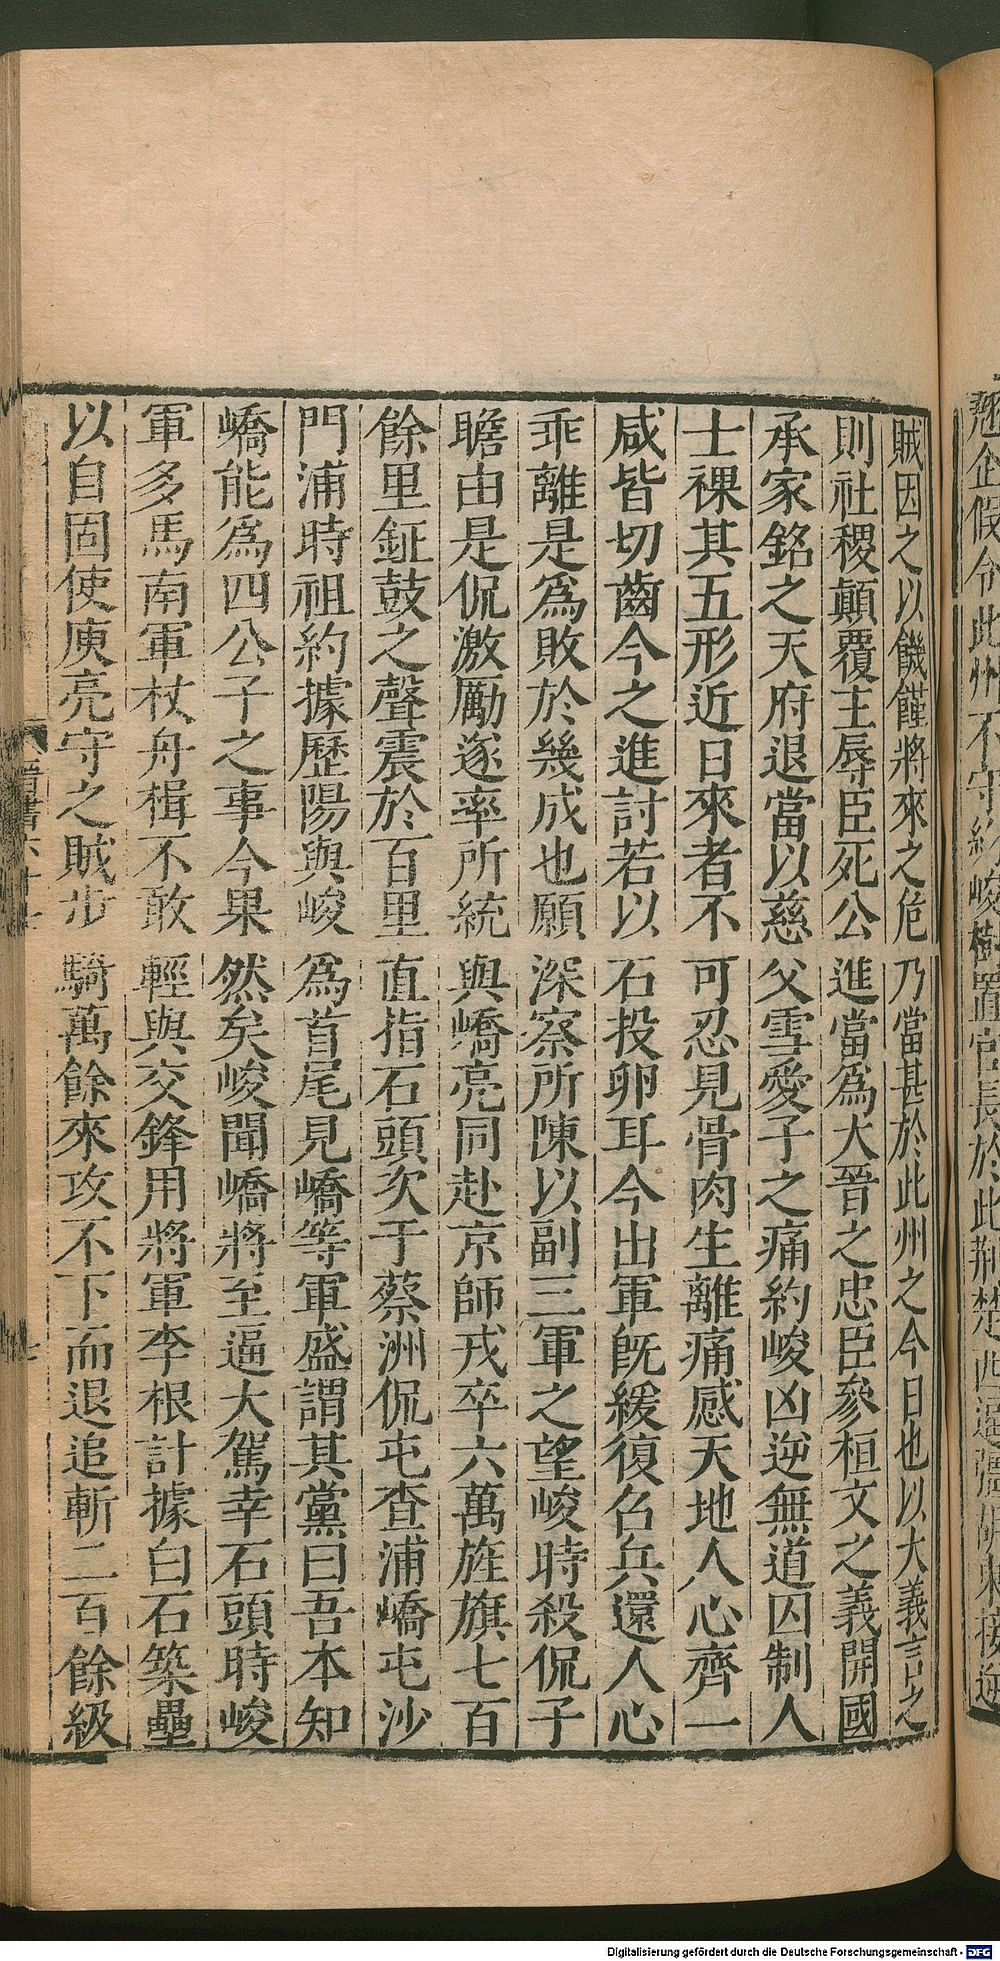 賊因之以饑饉將來之危乃當甚於此州之今日也以大義言之
則社稷顛覆主辱臣死公進當爲大晉之忠臣參桓文之義開國
承家銘之天府退當以慈父雪愛子之痛約峻凶逆無道囚制人
士裸其五形近日來者不可忍見骨肉生離痛感天地人心齊一
咸皆切齒今之進討若以石投卵耳今出軍旣緩復召兵還人心
乖離是爲敗於幾成也願深察所陳以副三軍之望峻時殺侃子
瞻由是侃激厲遂率所統與嶠亮同赴京師戎卒六萬旌旗七百
餘里鉦鼓之聲震於百里直指石頭次于蔡洲侃屯查浦嶠屯沙
門浦時祖約據歷陽與峻爲首尾見嶠等軍盛謂其黨曰吾本知
嶠能爲四公子之事今果然矣峻聞嶠將至逼大駕幸石頭時峻
軍多馬南軍杖舟楫不敢輕與交鋒用將軍李根計據白石築壘
以自固使庾亮守之賊步騎萬餘來攻不下而退追斬二百餘級
Digitalisierung gefördert durch die Deutsche Forschungsgemeinschaft - DFG